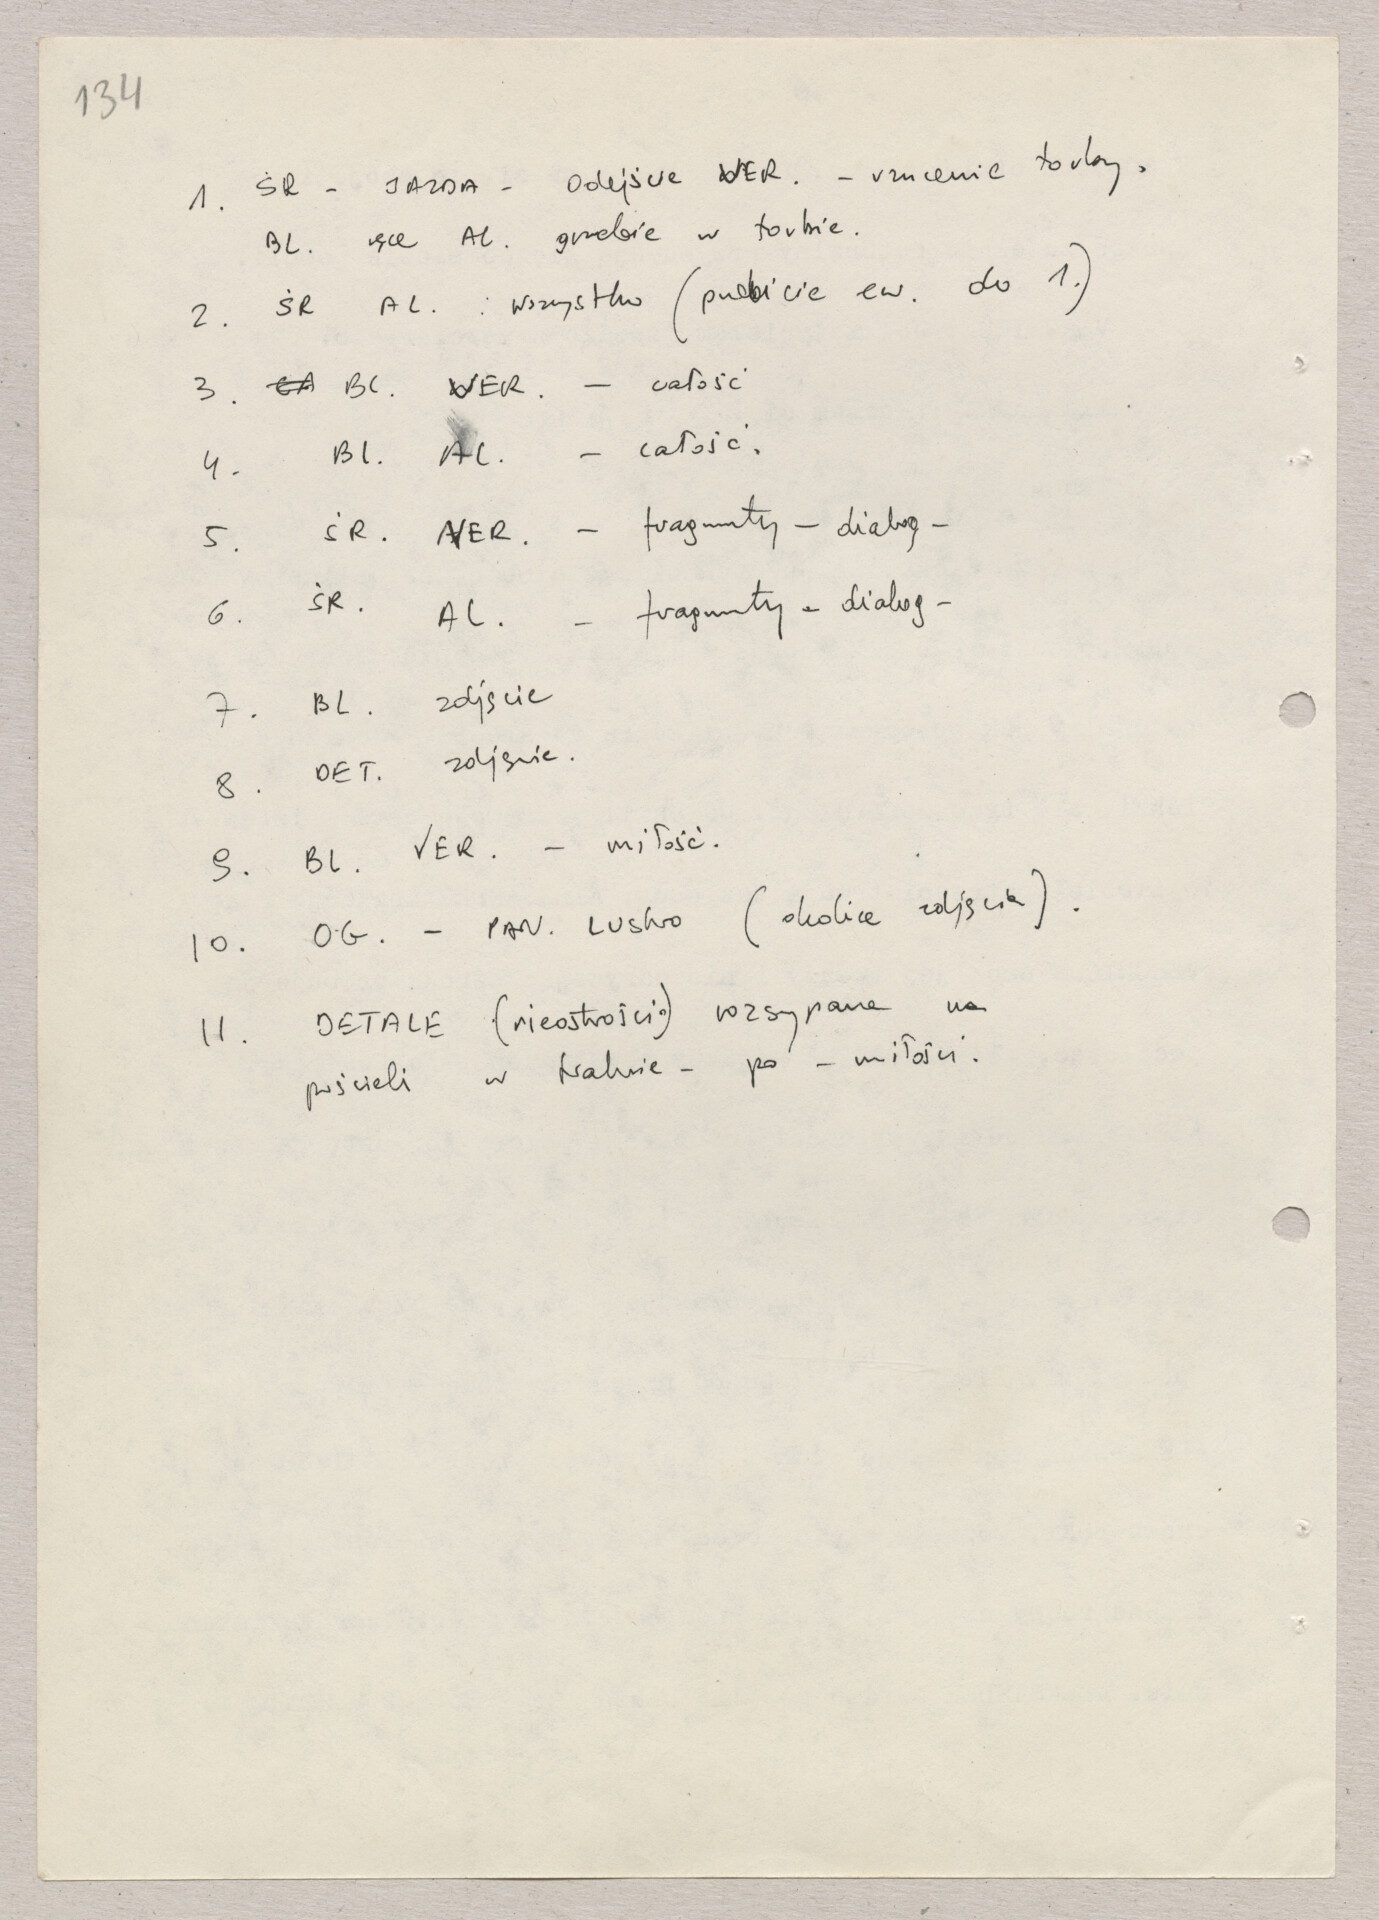 134
1. ŚR - JAZDA - Odejście WER. - rzucenie torby.
BL. ręce AL. grzebie w torbie.
2. ŚR AL. : wszystko (przebicie ew. do 1.)
3. BL. WER. - całość
4. BL. AL. - całość.
5. ŚR. WER. - fragmenty - dialog -
6. ŚR. AL. - fragmenty - dialog -
7. BL. zdjęcie
8. DET. zdjęcie.
9. BL. VER. - miłość.
10. OG. - PAN. LUSTRO (okolice zdjęcia).
11. DETALE (nieostrości) rozsypane na
pościeli w trakcie - po - miłości.